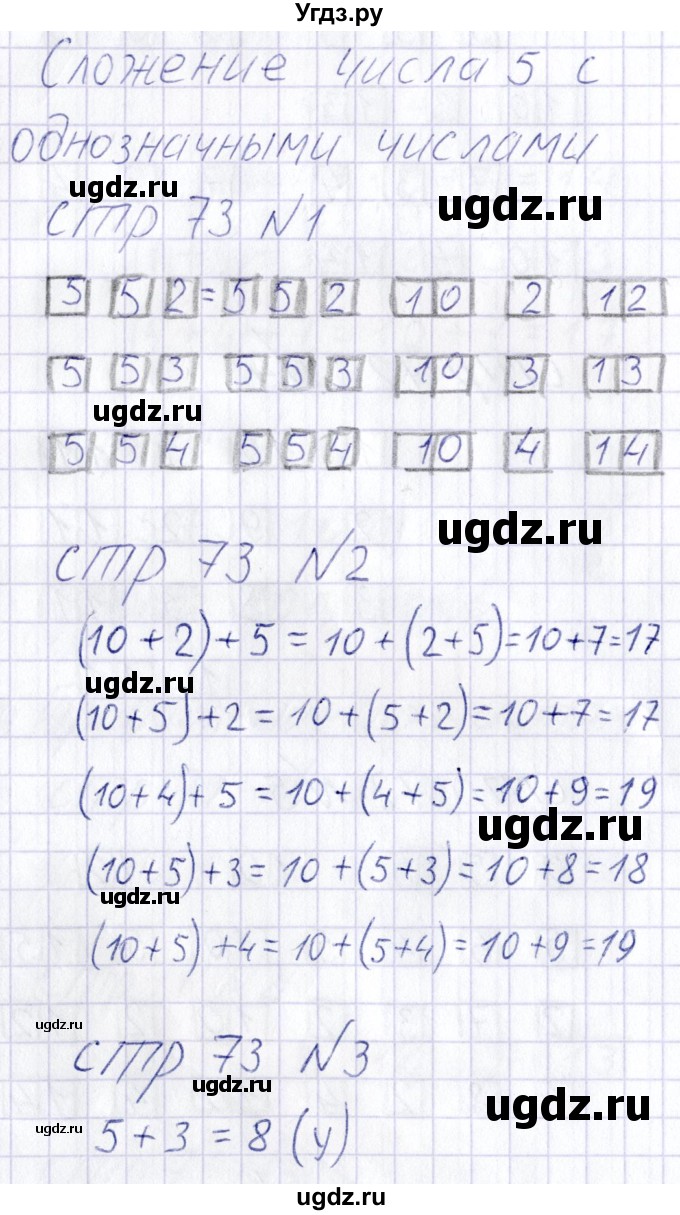 Угдз.ру
Сложение числа 5 с
однозначными числами
ugdz.ru ugdz.ru
стр 73 №1
5 5 2 = 5 5 2 10 2 12
5 5 3 5 5 3 10 3 13
ugdz.ru
5 5 4 5 5 4 10 4 14
ugdz.ru
стр 73 №2
(10+2)+5=10+(2+5)=10+7=17
ugdz.ru
(10+5)+2=10+(5+2)=10+7=17
(10+4)+5=10+(4+5)=10+9=19
ugdz.ru
(10+5)+3=10+(5+3)=10+8=18
ugdz.ru
(10+5)+4=10+(5+4)=10+9=19
ugdz.ru
стр 73 №3
ugdz.ru ugdz.ru
ugdz.ru
5+3=8(у)
ugdz.ru